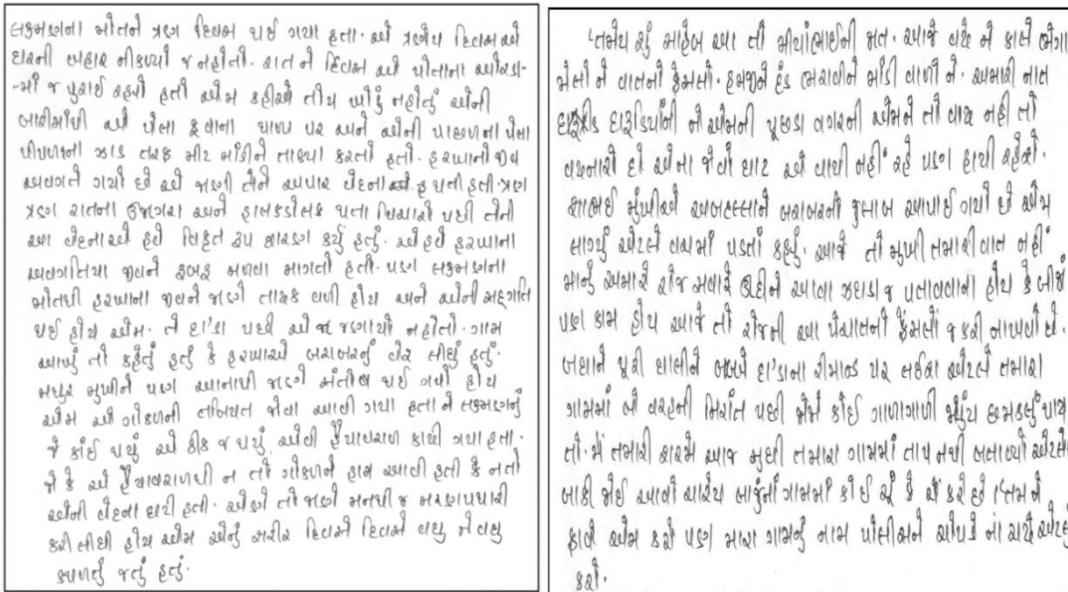 લક્ષ્મણના મોતને ત્રણ દિવસ થઈ ગયા હતા. એ ત્રણેય દિવસ એ
ઘરની બહાર નીકળ્યો જ નહોતો. રાત ને દિવસ એ પોતાના ઓરડા-
-માં જ પુરાઈ રહ્યો હતો એમ કહીએ તોય ખોટું નહોતું એની
બારીમાંથી એ પેલા કૂવાના થાળા પર અને એની પાછળના પેલા
પીપળાના ઝાડ તરફ મીટ માંડીને તાક્યા કરતો હતો. હરખાનો જીવ
અવગતે ગયો છે એ જાણી તેને અપાર વેદના થતી હતી. ત્રણ
ત્રણ રાતના ઉજાગરા અને હાલકડોલક થતા વિચારો પછી તેની
આ વેદનાએ હવે વિકૃત રૂપ ધારણ કર્યું હતું. એ હવે હરખાના
અવગતિયા જીવને રૂબરૂ મળવા માગતો હતો. પણ લક્ષ્મણના
મોતથી હરખાના જીવને જાણે તાટક વળી હોય અને એની સદ્ગતિ
થઈ હોય એમ. તે દા'ડા પછી એ જણાયો નહોતો. ગામ
આખું તો કહેતું હતું કે હરખાએ બરાબરનું વેર લીધું હતું.
મથુર મુખીને પણ આનાથી જાણે સંતોષ થઈ ગયો હોય
એમ એ ગોકળની તબિયત જોવા આવી ગયા હતા ને લક્ષ્મણનું
જે કાંઈ થયું એ ઠીક જ થયું. એવી હૈયાવરાળ કાઢી ગયા હતા.
જો કે એ હૈયાવરાળથી ન તો ગોકળને હામ આવી હતી કે નતો
એની વેદના ઘટી હતી. એણે તો જાણે મનથી જ મરણપથારી
કરી લીધી હોય એમ એનું શરીર દિવસે દિવસે વધુ ને વધુ
કથળતું જતું હતું.
'તમેય શું સાહેબ આ તો મીયાંભાઈની મત. આજે વઢે ને કાલે ભેગા
બેસો ને વાતનો ફેંસલો. હમજીને દંડ ભરાવીને માંડી વાળો ને. અમારી નાત
દારૂડિયાની ને એમની પૂછડા વગરની એમને તો વાઢ નહીં તો
વઢનારો દો એના જેવો ઘાટ એ વાઘી નહીં રહે પણ હાથી રહેશે.
મુખીએ બરાબરનો જુલાબ અપાઈ ગયો છે એમ
લાગ્યું એટલે વચમાં પડતાં કહ્યું. આજે તો મુખી તમારી વાત નહીં
માનું અમારે રોજ સવારે ઊઠીને આવા ઝઘડા જ પતાવવાના હોય કે બીજાં
પણ કામ હોય આજે તો રોજની આ પંચાતનો ફેંસલો જ કરી નાખવો છે.
બધાને પૂરી ઘાલીને બબ્બે દા'ડાના રીમાન્ડ પર લઈશ એટલે તમારા
ગામમાં બે વરહની નિરાંત પછી જોમે કોઈ ગાળાગાળી છમકલું થાય
તો. મેં તમારી શરમે આજ સુધી તમારા ગામમાં તાપ નથી બતાવ્યો એટલે
બાકી જોઈ આવો ચારેય બાજુનાં ગામમાં કોઈ ચૂં કે ચાં કરે છે। 'તમને
ફાવે એમ કરો પણ મારા ગામનું નામ પોલીસને ચોપડે નાં ચઢે એટલું
કરો.